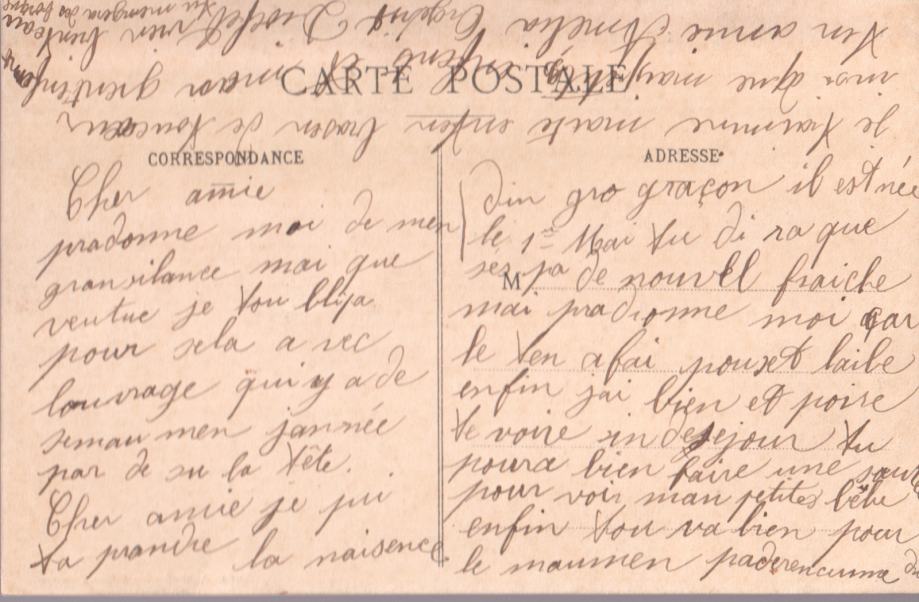 CARTE POSTALE
CORRESPONDANCE
Cher amie
pradonne moi de men
gransilance mai que
ventue je tou bliya
pour sela avec
louvrage qui y a de
semau men jannée
par de su la tête.
Cher amie je pui
ta prandre la naisence
ADRESSE
M
din gro graçon il est née
le 1er Mai tu di ra que
ses pa de nouvel fraiche
mai pradonne moi car
le ten a fai pouset laibe
enfin jai bien et poire
te voire in de sejour tu
poura bien faire une saut
pour voir man petites bébe
enfin tou va bien pour
le maumen pa
je termine maite enfen
de
moi que mari
Ton amie Amélia